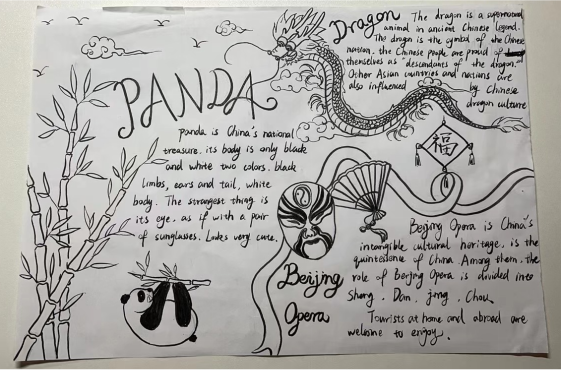 Dragon
The dragon is a supernatural
animal in ancient Chinese legend.
The dragon is the symbol of the Chinese
nation, the Chinese people are proud of
themselves as "descendants of the dragon."
Other Asian countries and nations are
also influenced by Chinese
dragon culture
PANDA
panda is China's national
treasure. its body is only black
and white two colors. black
limbs, ears and tail, white
body. The strangest thing is
its eye. as if with a pair
of sunglasses. Looks very cute.
福
Beijing
Opera
Beijing Opera is China's
intangible cultural heritage. is the
quintessence of China. Among them, the
role of Beijing Opera is divided into
Sheng. Dan, jing. Chou
Tourists at home and abroad are
welcome to enjoy.